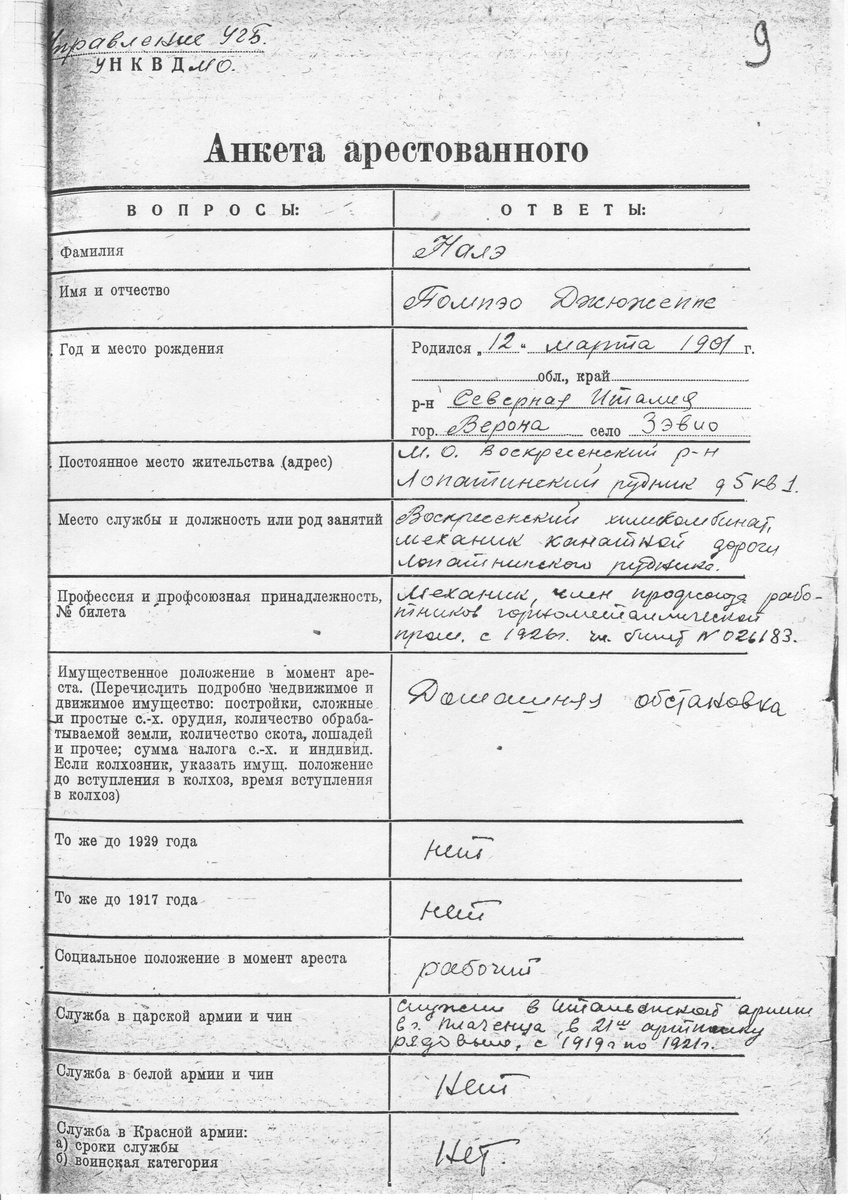 Управление УГБ.
УНКВД МО.
9
Анкета арестованного
ВОПРОСЫ:
ОТВЕТЫ:
Фамилия
Налэ
Имя и отчество
Помпэо Джюжеппе
Год и место рождения
Родился „12" марта 1901 г.
обл., край
р-н Северная Италия
гор. Верона село Зэвио
Постоянное место жительства (адрес)
М. О. Воскресенский р-н
Лопатинский рудник д 5 кв 1.
Место службы и должность или род занятий
Воскресенский химкомбинат,
механик канатной дороги
Лопатинского рудника.
Профессия и профсоюзная принадлежность,
№ билета
Механик, член профсоюза рабо-
тников горнометаллической
пром. с 1926г. чл. билет N 026183.
Имущественное положение в момент аре-
ста. (Перечислить подробно недвижимое и
движимое имущество: постройки, сложные
и простые с.-х. орудия, количество обраба-
тываемой земли, количество скота, лошадей
и прочее; сумма налога с.-х. и индивид.
Если колхозник, указать имущ. положение
до вступления в колхоз, время вступления
в колхоз)
Домашняя обстановка
То же до 1929 года
нет
То же до 1917 года
нет
Социальное положение в момент ареста
рабочий
Служба в царской армии и чин
Служил в Итальянской армии
в г. Плаченца, в 21ом артполку
рядовым, с 1919г по 1921г.
Служба в белой армии и чин
Нет
Служба в Красной армии:
а) сроки службы
б) воинская категория
Нет.